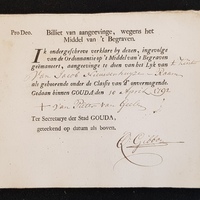 Pro Deo. Billiet van aangeevinge, wegens het
Middel van 't Begraven.
IK ondergeschreven verklare by dezen, ingevolge
van de Ordonnantie op 't Middel van 't Begraven
geëmaneert, aangeevinge te doen van het Lyk van
Van Jacob
als gehoorende onder de Classis van d' onvermogende.
Gedaan binnen GOUDA den 10 April 1791
van Pieter van
Ter Secretarye der Stad GOUDA,
geteekend op datum als boven.